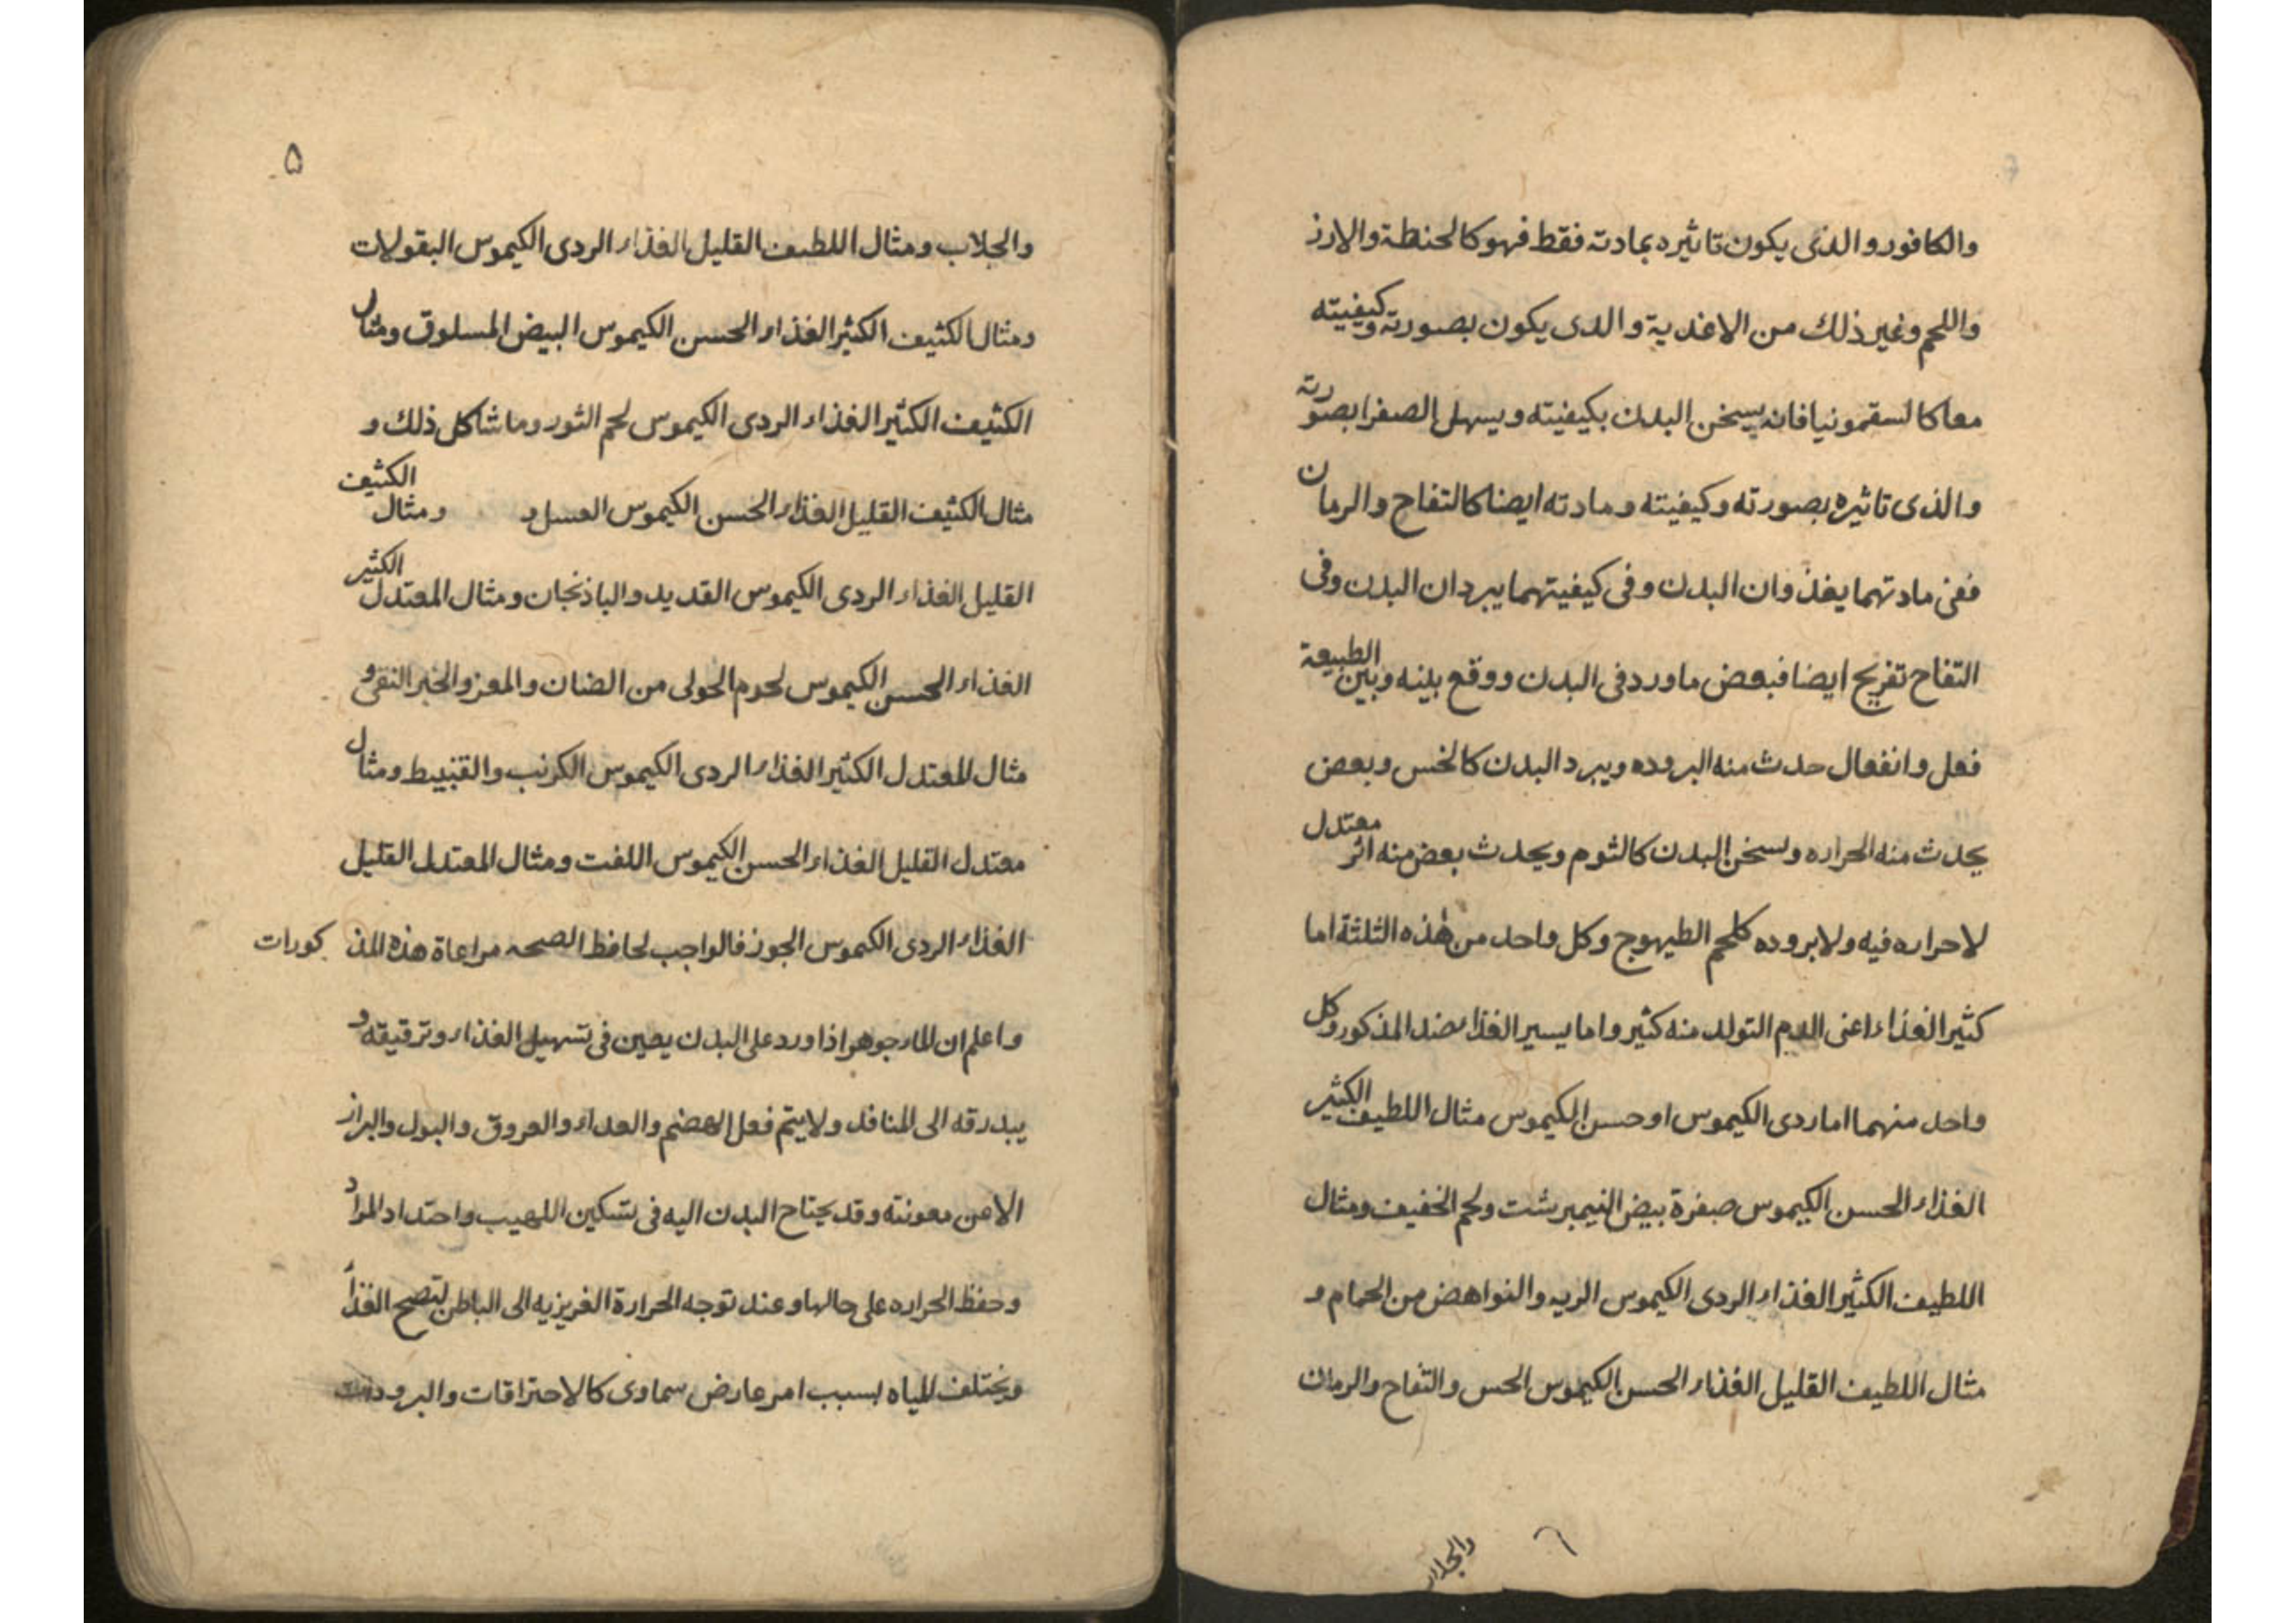 والكافور والذى يكون تاثيره بمادته فقط فهو كالحنطة والارز
واللحم وغير ذلك من الاغدية والدى يكون بصورته وكيفيته
معا كالسقمونيا فانه يسخن البدن بكيفيته ويسهل الصفرا بصورته
والذى تاثيره بصورته وكيفيته ومادته ايضا كالتفاح والرمان
ففى مادتهما يغذوان البدن وفى كيفيتهما يبردان البدن وفى
التفاح تفريح ايضا فبعض ما ورد فى البدن ووقع بينه وبين الطبيعة
فعل وانفعال حدث منه البروده ويبرد البدن كالخس وبعض
يحدث منه الحراره ويسخن البدن كالثوم ويحدث بعض منه اثر معتدل
لا حراره فيه ولا بروده كلحم الطيهوج وكل واحد من هذه الثلثة اما
كثير الغذاء اعنى الدم التولد منه كثير واما يسير الغذاء ضد المذكور وكل
واحد منهما اما ردى الكيموس او حسن الكيموس مثال اللطيف الكثير
الغذاء الحسن الكيموس صفرة بيض النيمبرشت ولحم الخفيف ومثال
اللطيف الكثير الغذاء الردى الكيموس الريه والنواهض من الحمام و
مثال اللطيف القليل الغذاء الحسن الكيموس الخس والتفاح والرمان
والجلاب
٦
۵
والجلاب ومثال اللطيف القليل الغذاء الردى الكيموس البقولات
ومثال الكثيف الكثير الغذاء الحسن الكيموس البيض المسلوق ومثال
الكثيف الكثير الغذاء الردى الكيموس لحم الثور وما شاكل ذلك و
مثال الكثيف القليل الغذاء الحسن الكيموس العسل و ومثال الكثيف
القليل الغذاء الردى الكيموس القديد والباذنجان ومثال المعتدل الكثير
الغذاء الحسن الكيموس لحوم الحولى من الضان والمعز والخبز النقى و
مثال المعتدل الكثير الغذاء الردى الكيموس الكرنب والقنبيط ومثال
معتدل القليل الغذاء الحسن الكيموس اللفت ومثال المعتدل القليل
الغذاء الردى الكيموس الجوز فالواجب لحافظ الصحه مراعاة هذه المذ كورات
واعلم ان الماء جوهر اذا ورد على البدن يعين فى تسهيل الغذاء وترقيقه و
يبدرقه الى المنافد ولا يتم فعل الهضم والعداء والعروق والبول والبراز
الا من معونته وقد يحتاح البدن اليه فى تسكين اللهيب واحتداد المراد
وحفظ الحراره على حالها وعند توجه الحرارة الغريزيه الى الباطن لتصح الغذاء
ويختلف المياه بسبب امر عارض سماوى كالاحتراقات والبرودات